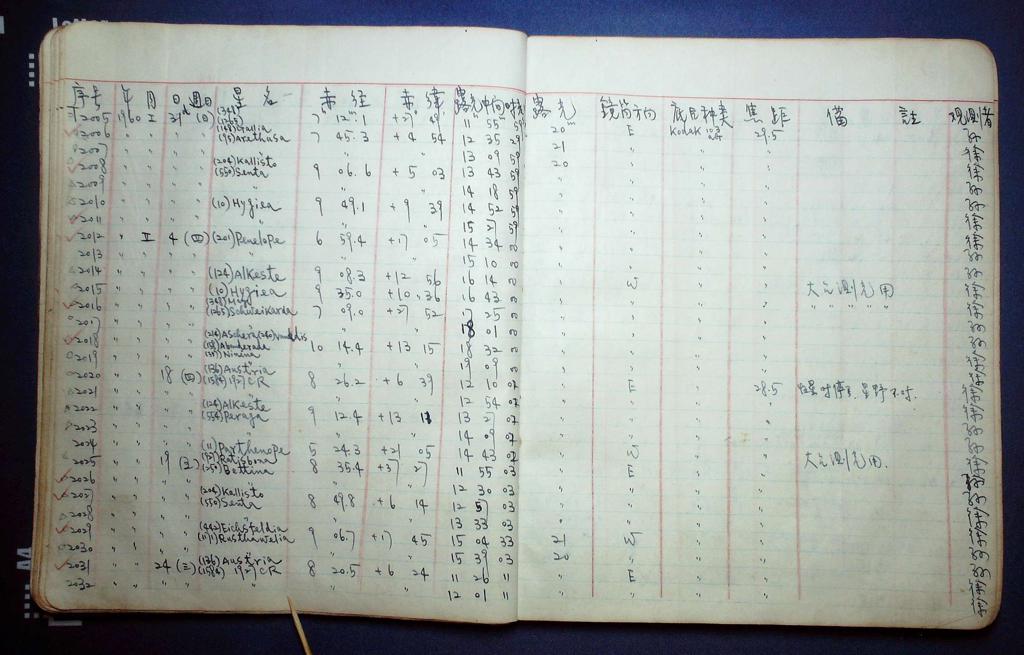 序号 年 月 日 週日 星名 赤经 赤緯 露光中间时刻 露光 镜筒方向 底片种类 焦距 備 註 观测者
2005 1960 I 31 (日) 7 12.1 +21 49 11 55 59 20 E Kodak 29.5
2006 〃 〃 〃 〃 (148)Gallia (95)Arethusa 7 45.3 +4 54 12 35 29 21 〃 〃 〃
2007 〃 〃 〃 〃 〃 〃 〃 13 09 59 20 〃 〃 〃
2008 〃 〃 〃 〃 (204)Kallisto (550)Senta 9 06.6 +5 03 13 43 59 〃 〃 〃 〃
2009 〃 〃 〃 〃 〃 〃 〃 14 18 59 〃 〃 〃 〃
2010 〃 〃 〃 〃 (10)Hygiea 9 49.1 +9 39 14 52 59 〃 〃 〃 〃
2011 〃 〃 〃 〃 〃 〃 〃 15 27 59 〃 〃 〃 〃
2012 〃 II 4 (四) (201)Penelope 6 59.4 +17 05 14 34 00 〃 〃 〃 〃
2013 〃 〃 〃 〃 〃 〃 〃 15 10 00 〃 〃 〃 〃
2014 〃 〃 〃 〃 (124)Alkeste 9 08.3 +12 56 16 14 00 〃 W 〃 〃 大气测光用
2015 〃 〃 〃 〃 (10)Hygiea 9 35.0 +10 36 16 43 00 〃 〃 〃 〃 〃 〃 〃 〃
2016 〃 〃 〃 〃 7 09.0 +21 52 17 25 00 〃 〃 〃 〃
2017 〃 〃 〃 〃 〃 〃 〃 18 01 00 〃 〃 〃 〃
2018 〃 〃 〃 〃 (214)Aschera (151)Abundantia 10 14.4 +13 15 18 32 00 〃 〃 〃 〃
2019 〃 〃 〃 〃 〃 〃 〃 19 09 00 〃 〃 〃 〃
2020 〃 〃 18 (四) (136)Austria 1927CR 8 26.2 +6 39 12 10 02 〃 E 〃 28.5
2021 〃 〃 〃 〃 〃 〃 〃 12 54 02 〃 〃 〃 〃
2022 〃 〃 〃 〃 (124)Alkeste (554)Peraga 9 12.4 +13 11 13 27 02 〃 〃 〃 〃
2023 〃 〃 〃 〃 〃 〃 〃 14 09 02 〃 〃 〃 〃
2024 〃 〃 〃 〃 (11)Parthenope 5 24.3 +21 05 14 43 02 〃 W 〃 〃 大气测光用
2025 〃 〃 19 Ratisbona (250)Bettina 8 35.4 +37 27 11 55 03 〃 E 〃 〃
2026 〃 〃 〃 〃 〃 〃 〃 12 30 03 〃 〃 〃 〃
2027 〃 〃 〃 〃 (204)Kallisto (550)Senta 8 49.8 +6 14 12 57 03 〃 〃 〃 〃
2028 〃 〃 〃 〃 〃 〃 〃 13 33 03 〃 〃 〃 〃
2029 〃 〃 〃 〃 (442)Eichsfeldia (1171)Rusthawelia 9 06.7 +17 45 15 04 33 21 W 〃 〃
2030 〃 〃 〃 〃 〃 〃 〃 15 39 03 20 〃 〃 〃
2031 〃 〃 24 (三) (136)Austria 1927CR 8 20.5 +6 24 11 26 〃 〃 E 〃 〃
2032 〃 〃 〃 〃 〃 〃 〃 12 01 〃 〃 〃 〃 〃